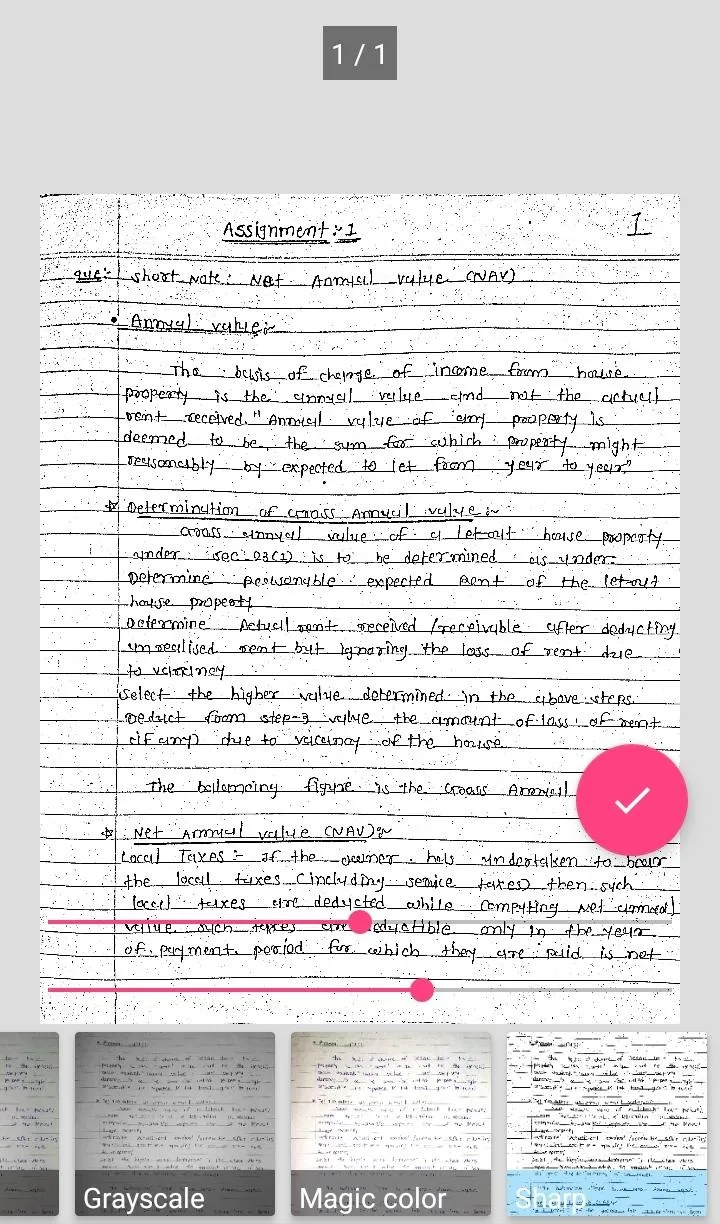 1 / 1
Assignment :- 1
1
que:- short Note: Net Annual value (NAV)
• Annual value:-
The basis of charge of income from house
property is the annual value and not the actual
rent received." Annual value of any property is
deemed to be the sum for which property might
reasonably by expected to let from year to year"
Determination of Gross Annual value:-
Gross annual value of a let-out house property
under sec-23(1) is to be determined as under-
Determine reasonable expected Rent of the let-out
house property
Determine Actual rent received /receivable after deducting
unrealised rent but ignoring the loss of rent due
to vacancy
select the higher value determined in the above steps
Deduct from step-3 value the amount of loss of rent
(if any) due to vacancy of the house
The ballancing figure is the Gross Annual
Net Annual value (NAV):-
Local Taxes :- If the owner has undertaken to bear
the local taxes (including service taxes) then such
local taxes are deducted while computing Net annual
value such taxes are deductible only in the year
of payment period for which they are paid is not
Grayscale
Magic color
Sharp